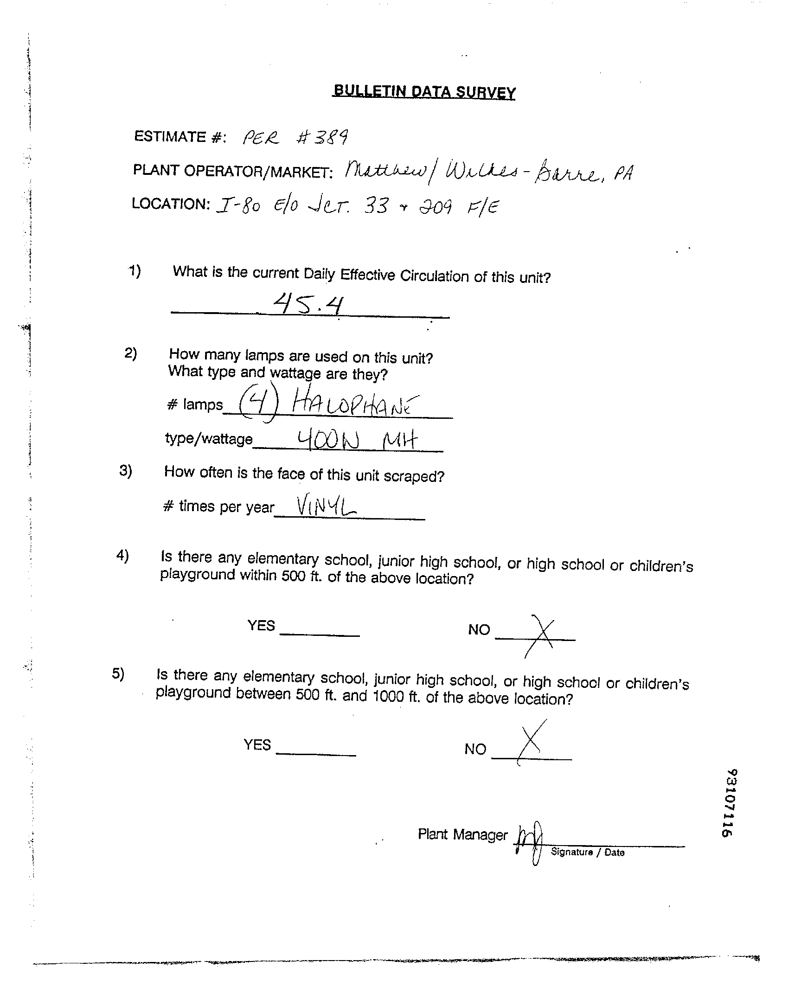 BULLETIN DATA SURVEY
ESTIMATE #: PER #389
PLANT OPERATOR/MARKET: Matthew/Wilkes-Barre, PA
LOCATION: I-80 E/O JCT. 33 + 209 F/E
1) What is the current Daily Effective Circulation of this unit?
45.4
2) How many lamps are used on this unit?
What type and wattage are they?
# lamps (4) HALOPHANE
type/wattage 400W MH
3) How often is the face of this unit scraped?
# times per year VINYL
4) Is there any elementary school, junior high school, or high school or children's
playground within 500 ft. of the above location?
YES NO X
5) Is there any elementary school, junior high school, or high school or children's
playground between 500 ft. and 1000 ft. of the above location?
YES NO X
Plant Manager
Signature / Date
93107116